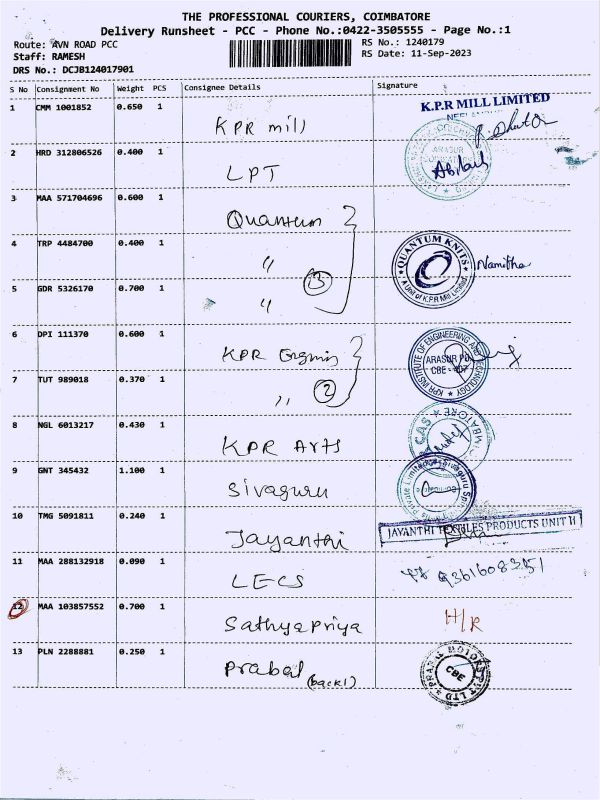 THE PROFESSIONAL COURIERS, COIMBATORE
Delivery Runsheet - PCC - Phone No.:0422-3505555 - Page No.:1
Route: AVN ROAD PCC
RS No.: 1240179
Staff: RAMESH
RS Date: 11-Sep-2023
DRS No.: DCJB124017901
S No Consignment No Weight PCS Consignee Details Signature
1 CMM 1001852 0.650 1 KPR mill K.P.R MILL LIMITED
2 HRD 312806526 0.400 1 LPT ARASUR
3 MAA 571704696 0.600 1 Quantum
4 TRP 4484700 0.400 1 " QUANTUM KNITS A Unit of K.P.R Mill Limited Namitha
5 GDR 5326170 0.700 1 " 3
6 DPI 111370 0.600 1 KPR Engnin KPR INSTITUTE OF ENGINEERING AND TECHNOLOGY ARASUR PO CBE - 407
7 TUT 989018 0.370 1 " 2
8 NGL 6013217 0.430 1 KPR Arts CAS
9 GNT 345432 1.100 1 Sivaguru
10 TMG 5091811 0.240 1 Jayanthi JAYANTHI TEXTILES PRODUCTS UNIT II
11 MAA 288132918 0.090 1 LECS 9361608351
12 MAA 103857552 0.700 1 Sathyapriya H/R
13 PLN 2288881 0.250 1 Prabal (back1) CBE